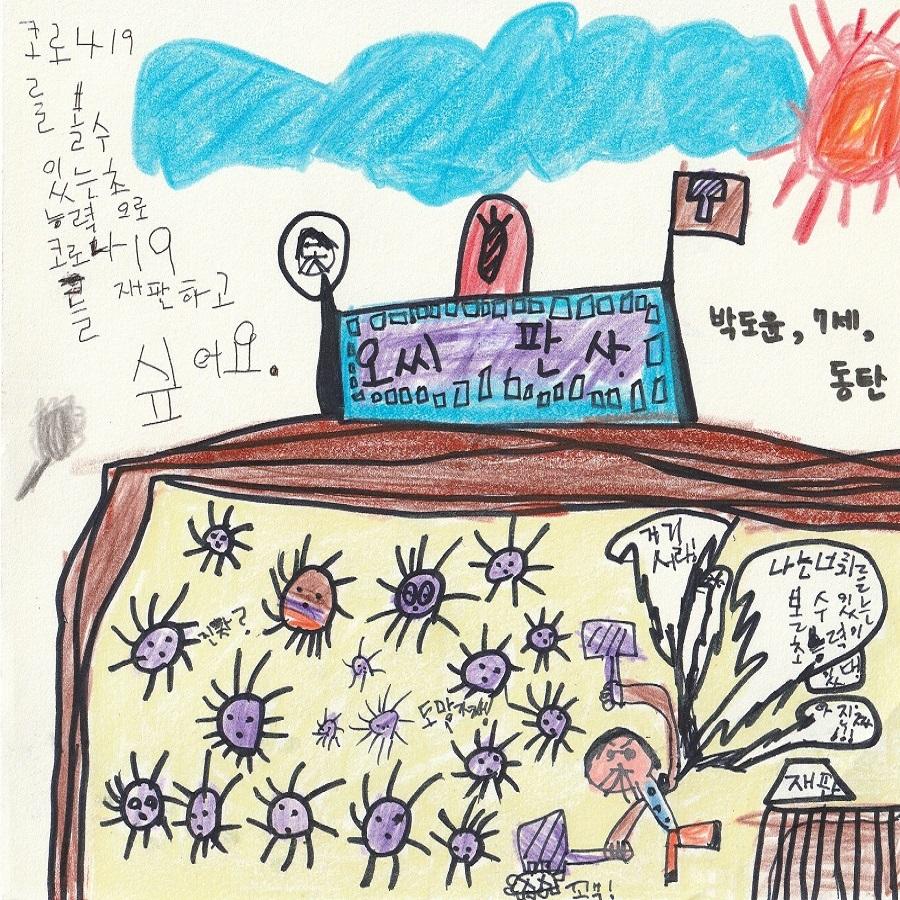 코로나19
를 볼 수
있는 초
능력 으로
코로나19
를 재판하고
싶 어요.
박도윤, 7세,
동탄
오씨 판 사
거기
서라!
나는 너희를
볼 수 있는
초능력이
있댕
아 진짜
임
진짜?
도망쳐!
재판